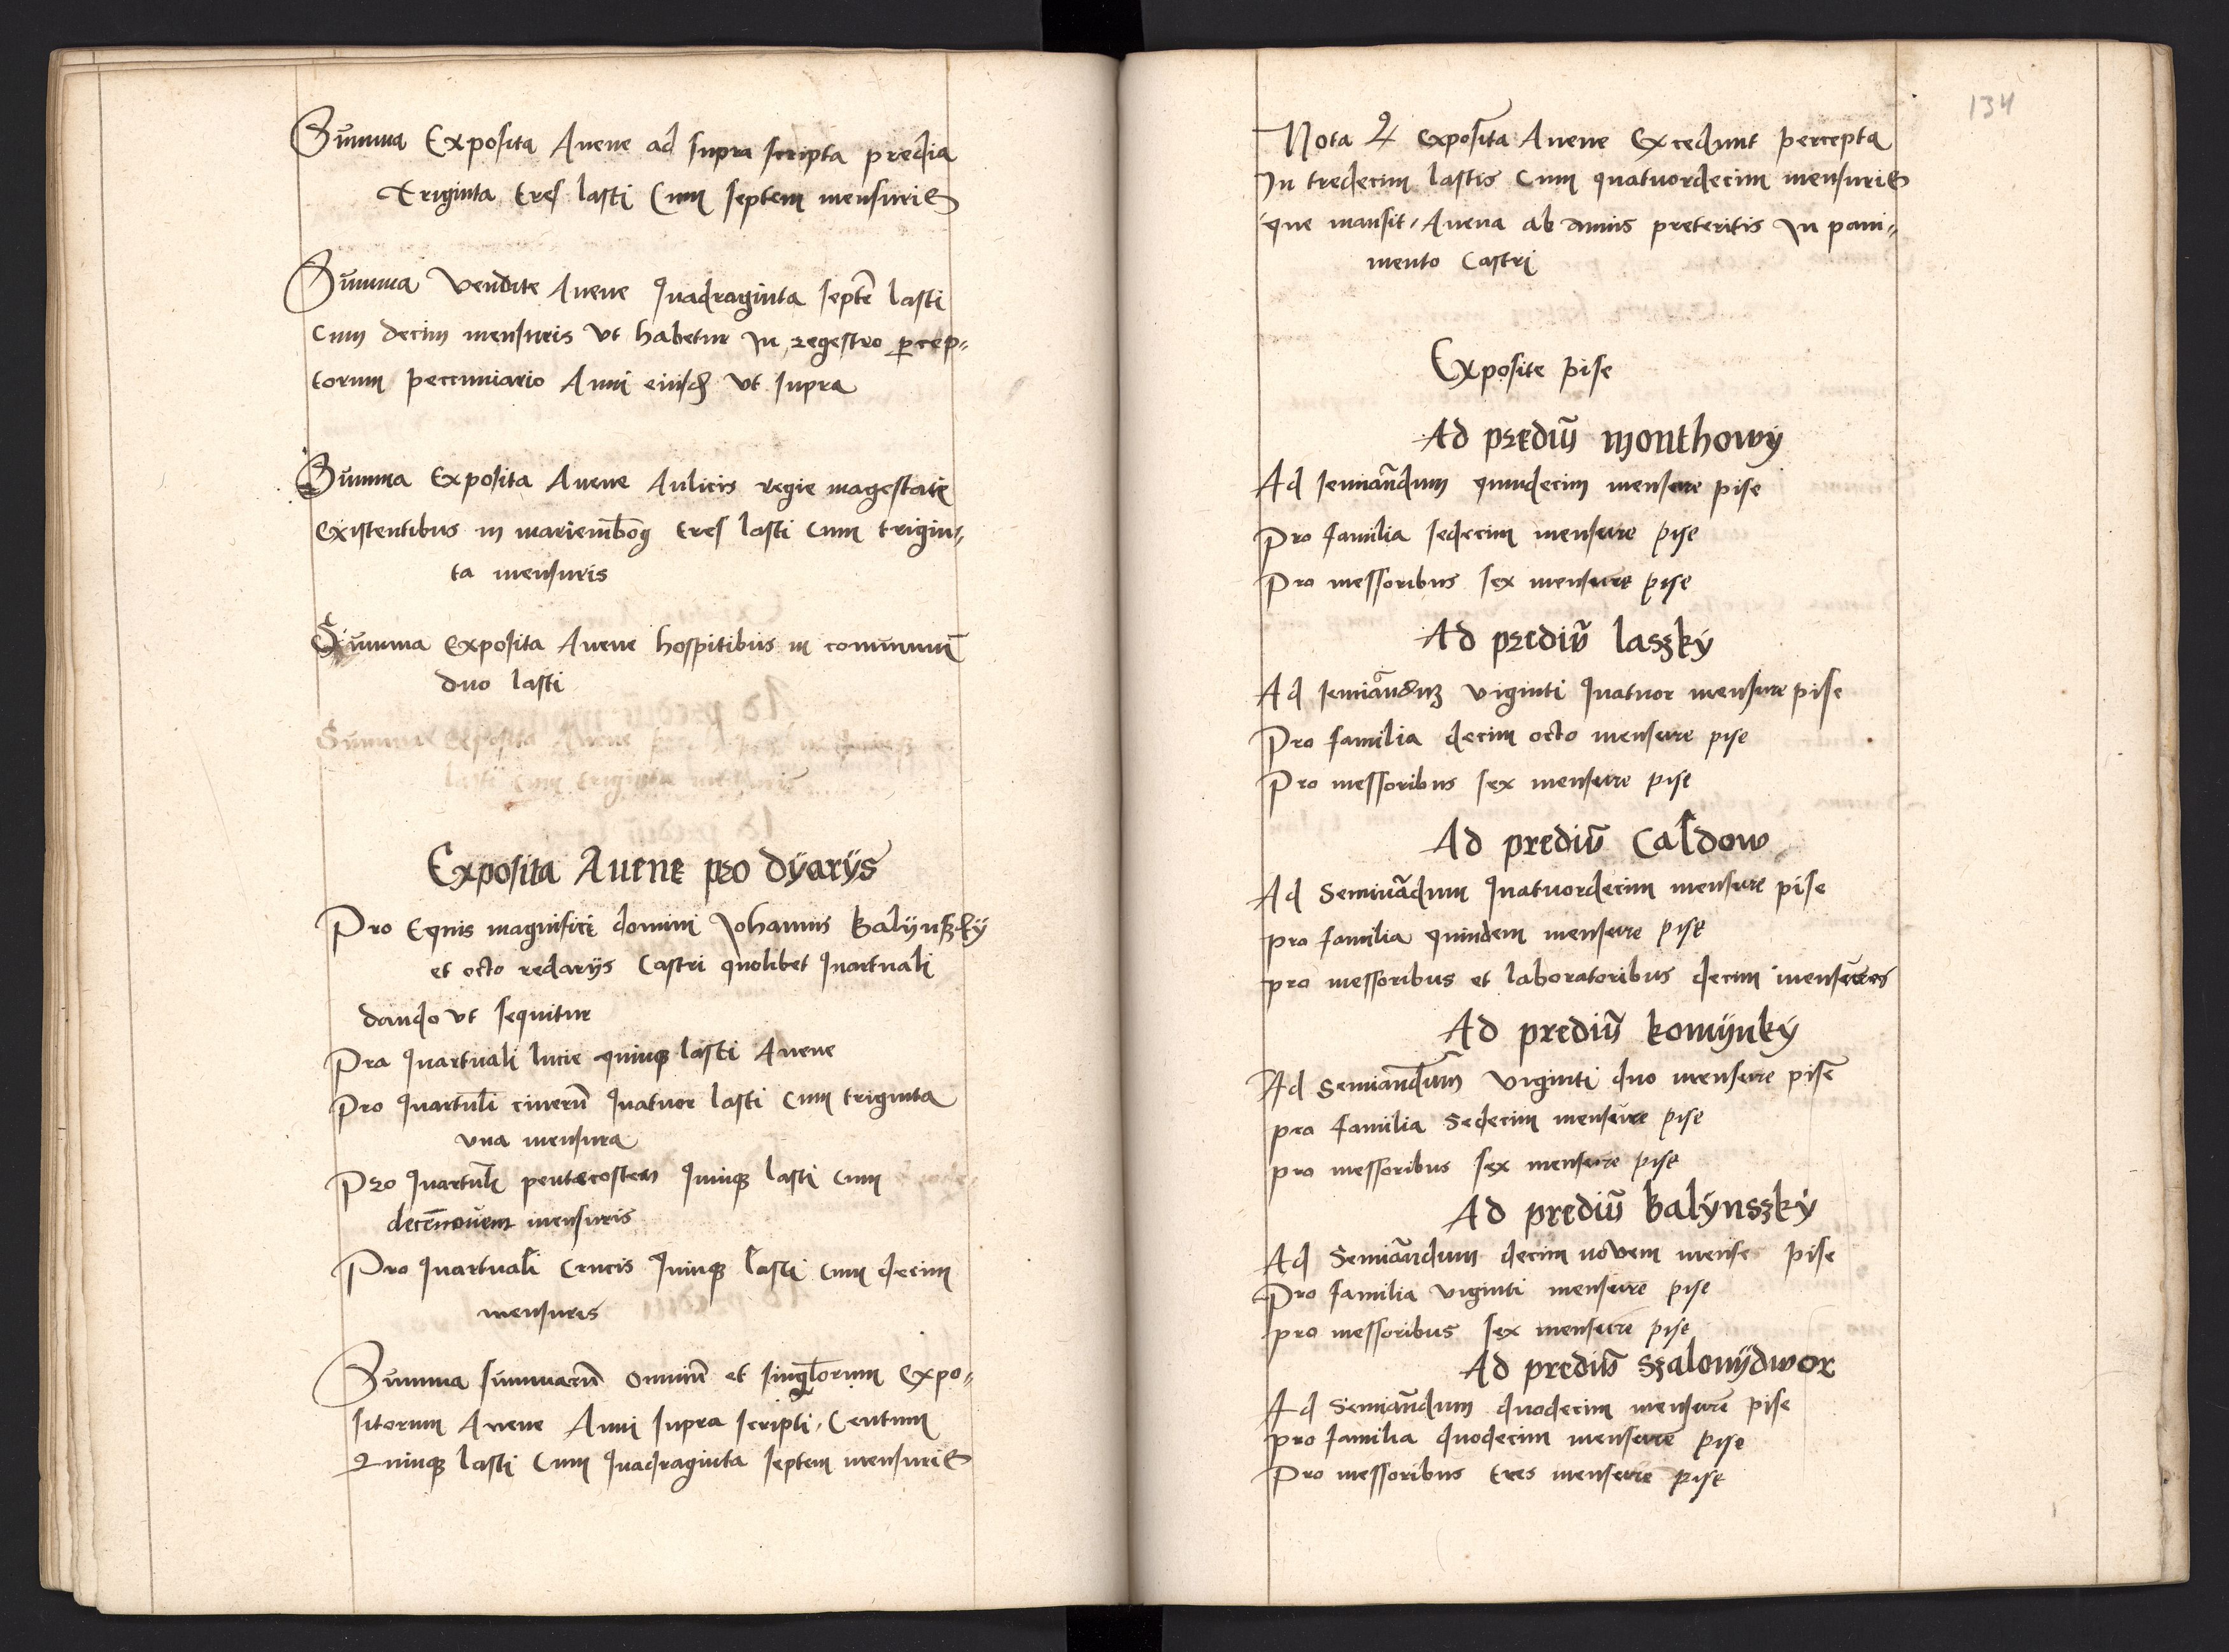 Summa Exposita Auene ad supra scripta predia
Triginta tres lasti Cum septem mensuris
Summa Vendite Auene Quadraginta septē lasti
Cum decim mensuris Vt habetur In regestro ꝑcep„
torum peccuniario Anni eiusdē Vt supra
Summa Exposita Auene Aulicis regie magestatis
Existentibus in mariemb̄og tres lasti Cum trigin„
ta mensuris
Summa Exposita Auene hospitibus in comununī
duo lasti
Summa Exposita Auene
lasti Cum triginta mensuris
Exposita Auene pro dÿarÿs
Pro Equis magnifici domini Johannis Balÿnszkÿ
et octo redarÿs Castri quolibet Quartuali
dando Vt sequitur
Pro Quartuali lucie quinqꝫ lasti Auene
Pro Quartul̄i cinerū Quatuor lasti Cum triginta
vna mensura
Pro Quartul̄i pentecosten Quinqꝫ lasti Cum
decēnouem mensuris
Pro Quartuali Crucis Quinqꝫ lasti Cum decim
mensuris
Summa summarū omniū et singl̄orum Expo„
sitorum Auene Anni supra scripti, Centum
Quinqꝫ lasti Cum Quadraginta septem mensuris
134
Nota Exposita Auene Excedunt percepta
In tredecim lastis Cum quatuordecim mensuris
que mansit, Auena ab annis preteritis In paui„
mento Castri
Exposite pise
Ad prediū monthowÿ
Ad seminādum quindecim mensure pise
Pro familia sedecim mensure pise
Pro messoribus sex mensure pise
Ad prediū laszkÿ
Ad semināduꝫ viginti Quatuor mensure pise
Pro familia decim octo mensure pise
Pro messoribus sex mensure pise
Ad prediū Caldow
Ad Seminādum Quatuordecim mensure pise
pro familia quindem mensure pise
pro messoribus et laboratoribus decim mensures
Ad prediū komÿnkÿ
Ad Seminandum Viginti duo mensure pise
pro familia Sedecim mensure pise
pro messoribus sex mensure pise
Ad prediū Balÿnszkÿ
Ad Seminādum decim novem mense pise
Pro familia viginti mensure pise
pro messoribus sex mensure pise
Ad prediū Szalonÿdwor
Ad Seminādum duodecim mensure pise
pro familia duodecim mensure pise
Pro messoribus tres mensure pise